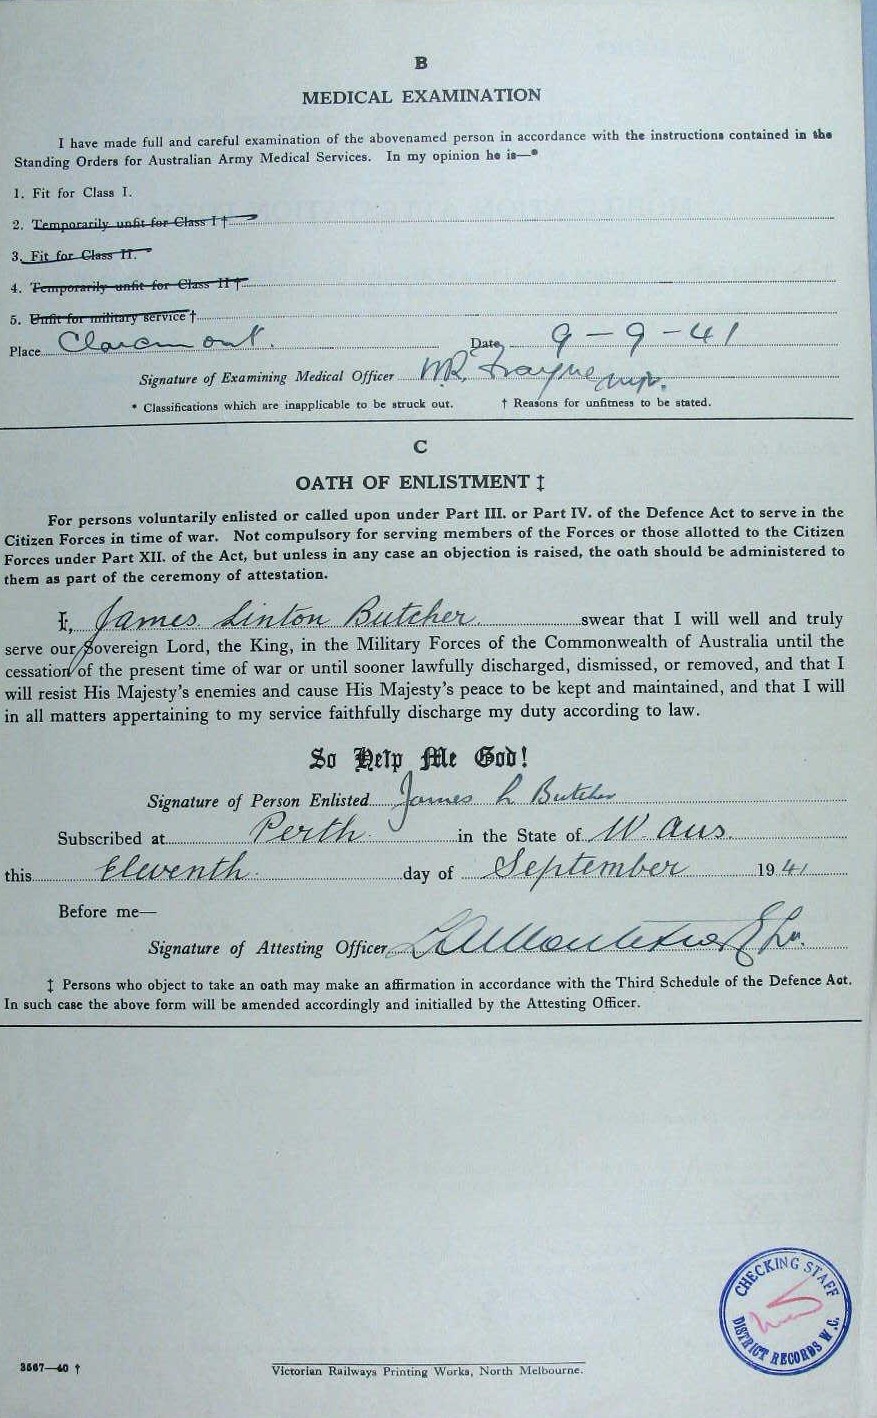 B
MEDICAL EXAMINATION
I have made full and careful examination of the abovenamed person in accordance with the instructions contained in the
Standing Orders for Australian Army Medical Services. In my opinion he is—*
1. Fit for Class I.
2. Temporarily unfit for Class I †
3. Fit for Class II.
4. Temporarily unfit for Class II †
5. Unfit for military service †
Place Claremont. Date 9-9-41
Signature of Examining Medical Officer
* Classifications which are inapplicable to be struck out. † Reasons for unfitness to be stated.
C
OATH OF ENLISTMENT ‡
For persons voluntarily enlisted or called upon under Part III. or Part IV. of the Defence Act to serve in the
Citizen Forces in time of war. Not compulsory for serving members of the Forces or those allotted to the Citizen
Forces under Part XII. of the Act, but unless in any case an objection is raised, the oath should be administered to
them as part of the ceremony of attestation.
I, James Linton Butcher swear that I will well and truly
serve our Sovereign Lord, the King, in the Military Forces of the Commonwealth of Australia until the
cessation of the present time of war or until sooner lawfully discharged, dismissed, or removed, and that I
will resist His Majesty's enemies and cause His Majesty's peace to be kept and maintained, and that I will
in all matters appertaining to my service faithfully discharge my duty according to law.
So Help Me God!
Signature of Person Enlisted James L Butcher
Subscribed at Perth in the State of W. Aus.
this Eleventh day of September 1941
Before me—
Signature of Attesting Officer
‡ Persons who object to take an oath may make an affirmation in accordance with the Third Schedule of the Defence Act.
In such case the above form will be amended accordingly and initialled by the Attesting Officer.
CHECKING STAFF
DISTRICT RECORDS W.C.
3567—40 †
Victorian Railways Printing Works, North Melbourne.